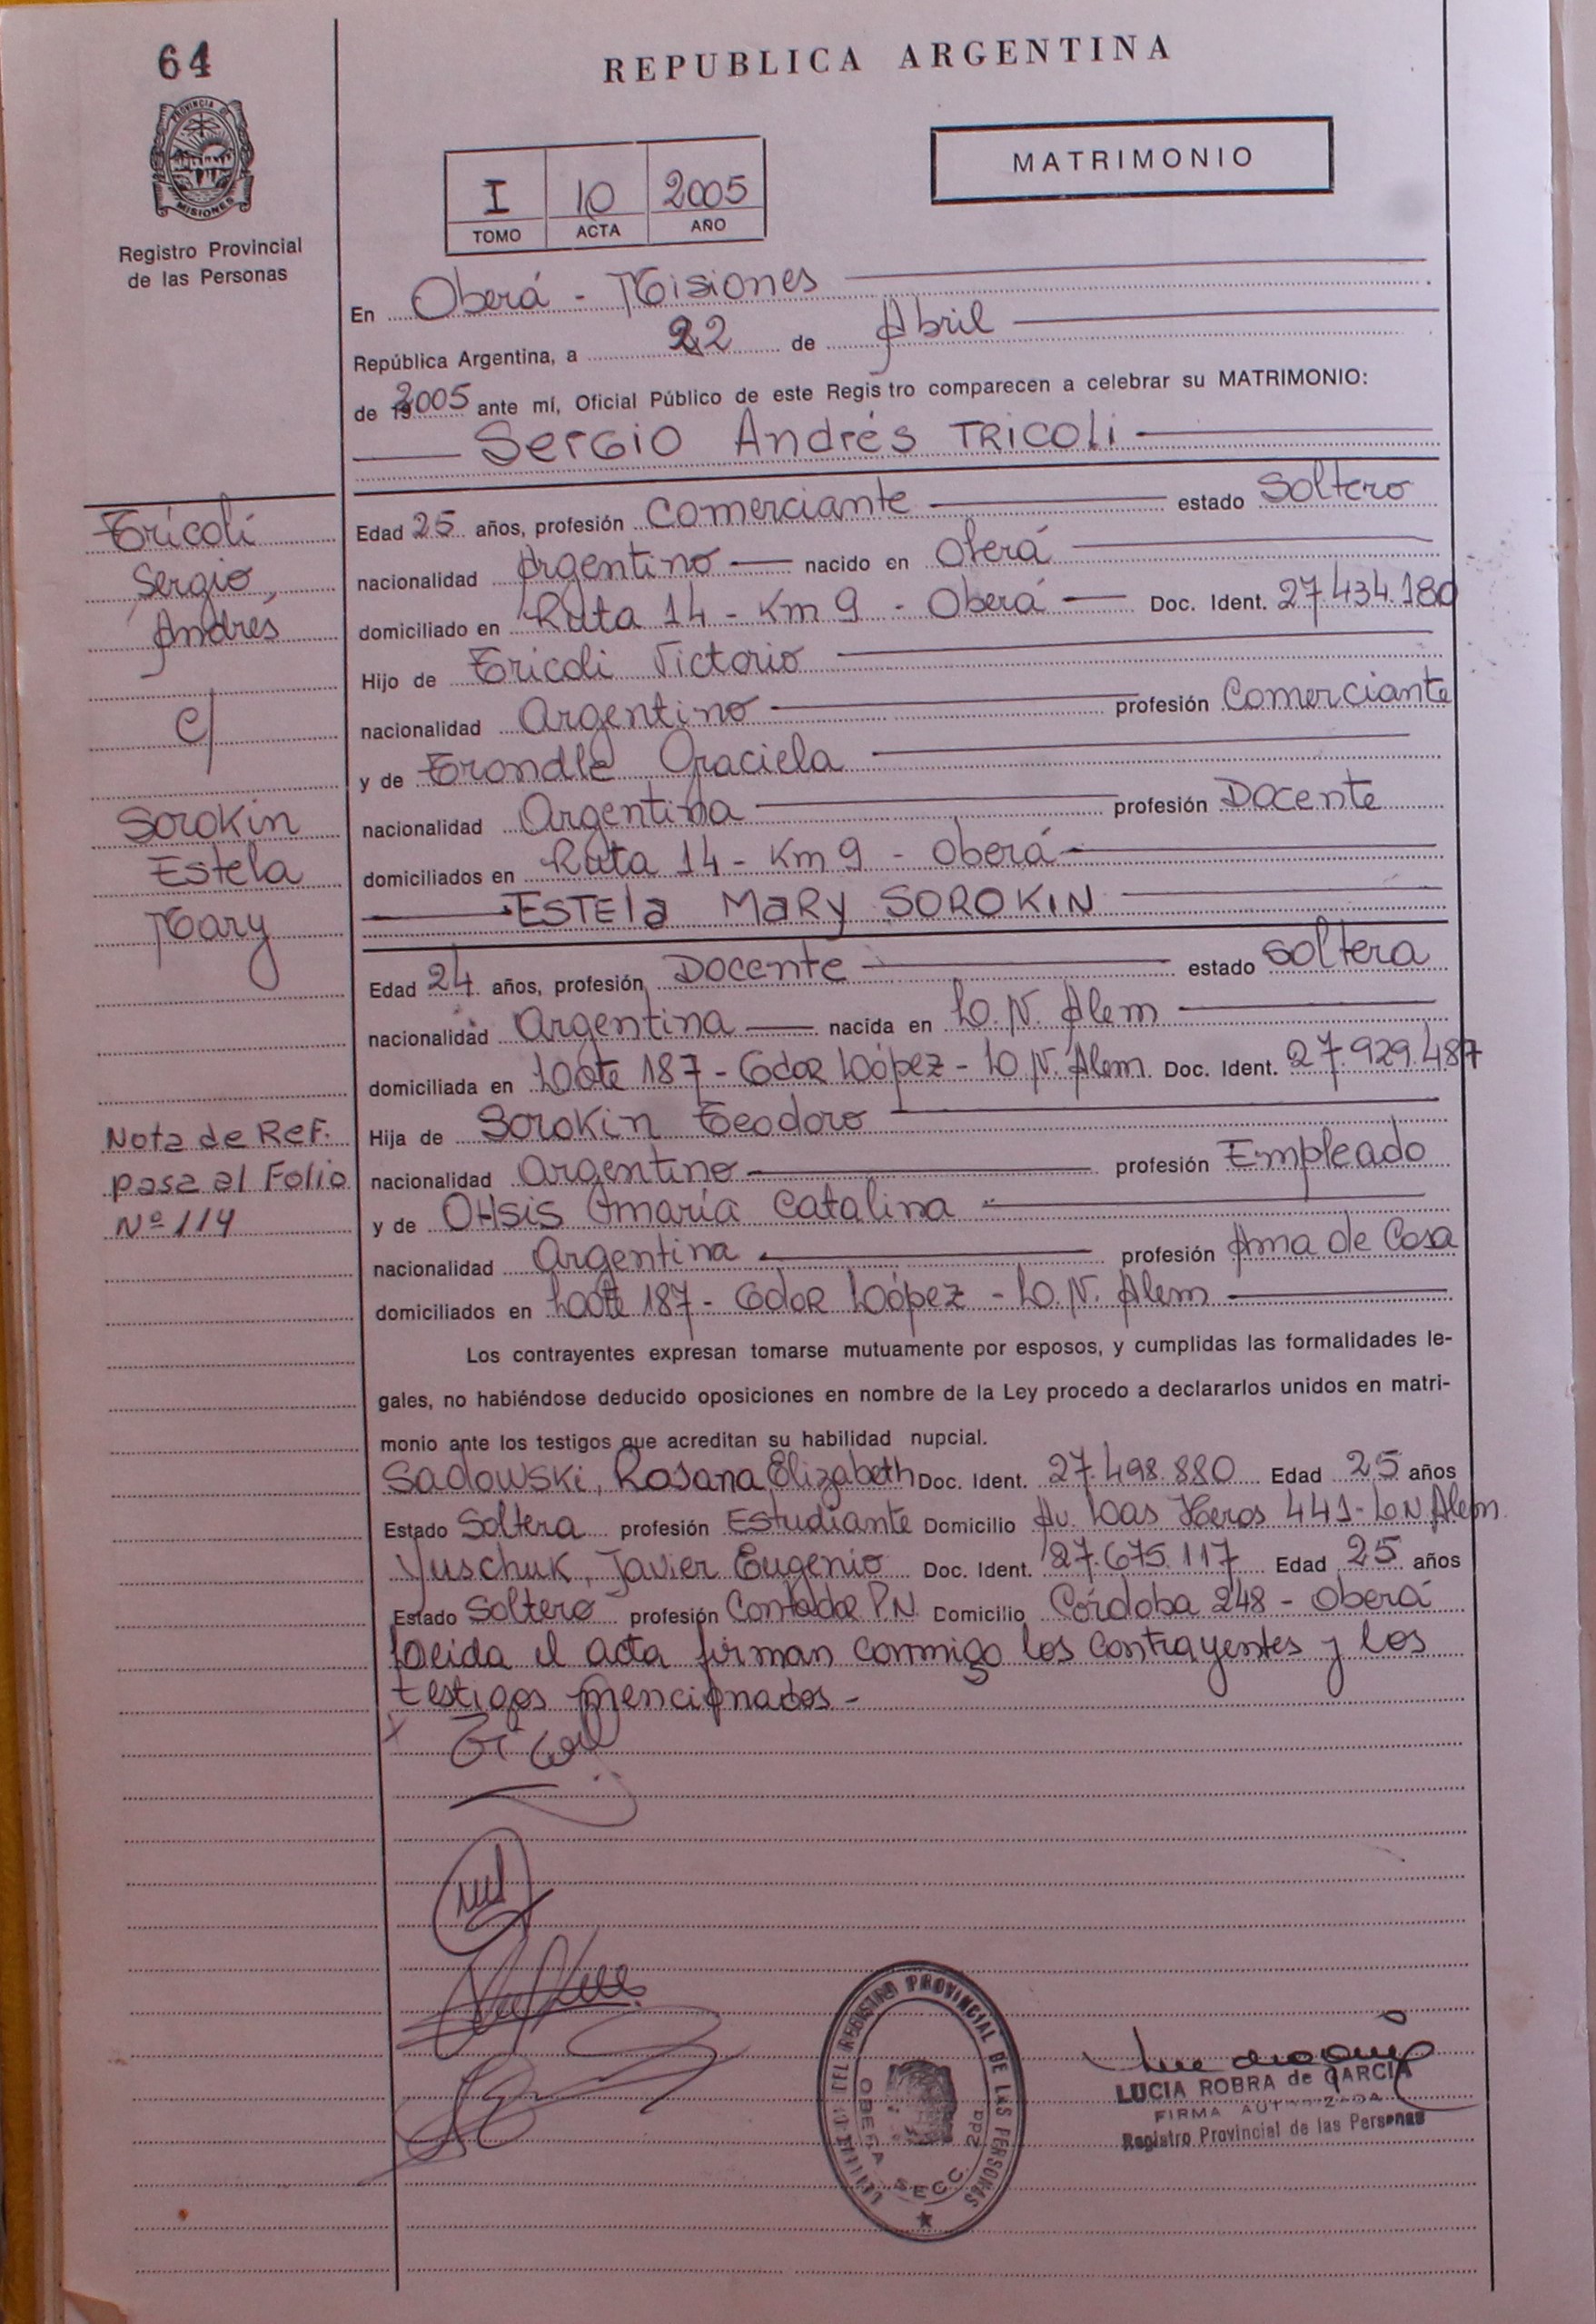 64
REPUBLICA ARGENTINA
PROVINCIA DE
MISIONES
Registro Provincial
de las Personas
MATRIMONIO
I 10 2005
TOMO ACTA AÑO
En Oberá - Misiones
República Argentina, a 22 de Abril
de 2005 ante mí, Oficial Público de este Regis tro comparecen a celebrar su MATRIMONIO:
Sergio Andrés TRICOLI
Edad 25 años, profesión Comerciante estado Soltero
nacionalidad Argentino nacido en Oberá
domiciliado en Ruta 14 - Km 9 - Oberá Doc. Ident. 27.434.180
Hijo de Tricoli Victorio
nacionalidad Argentino profesión Comerciante
y de Trondle Graciela
nacionalidad Argentina profesión Docente
domiciliados en Ruta 14 - Km 9 - Oberá
ESTEla MaRy SOROKIN
Edad 24 años, profesión Docente estado soltera
nacionalidad Argentina nacida en L. N. Alem
domiciliada en Lote 187 - Cdor López - L. N. Alem Doc. Ident. 27.929.487
Hija de Sorokin Teodoro
nacionalidad Argentino profesión Empleado
y de María Catalina
nacionalidad Argentina profesión Ama de Casa
domiciliados en Lote 187 - Cdor López - L. N. Alem
Los contrayentes expresan tomarse mutuamente por esposos, y cumplidas las formalidades le-
gales, no habiéndose deducido oposiciones en nombre de la Ley procedo a declararlos unidos en matri-
monio ante los testigos que acreditan su habilidad nupcial.
Sadowski, Rosana Elizabeth Doc. Ident. 27.498.880 Edad 25 años
Estado Soltera profesión Estudiante Domicilio Av. Las Heros 441 - L N Alem
Yuschuk, Javier Eugenio Doc. Ident. 27.675.117 Edad 25 años
Estado Soltero profesión Contador P.N. Domicilio Córdoba 248 - Oberá
Leida el acta firman conmigo los contrayentes y los
testigos mencionados -
Tricoli
Sergio,
Andrés
c/
Sorokin
Estela
Mary
Nota de Ref.
pasa al Folio
Nº 114
DEL REGISTRO PROVINCIAL DE LAS PERSONAS
OBERA SECC. 2da
LUCIA ROBRA de GARCIA
FIRMA AUTORIZADA
Registro Provincial de las Personas